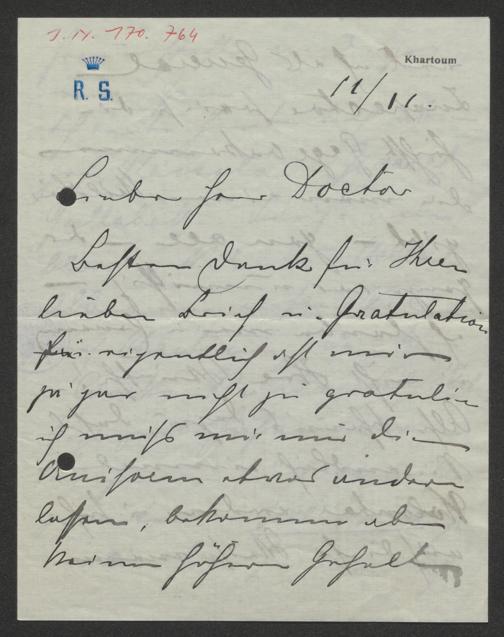 J. N. 170. 764
R. S.
Khartoum
11/11.
Lieber Herr Doctor
Besten Dank für Ihren
lieben Brief u. Gratulation
für. eigentlich ist mir
ja gar nicht zu gratulieren
ich muß mir nur die
Uniform etwas ändern
lassen, bekomme aber
keinen höhern Gehalt